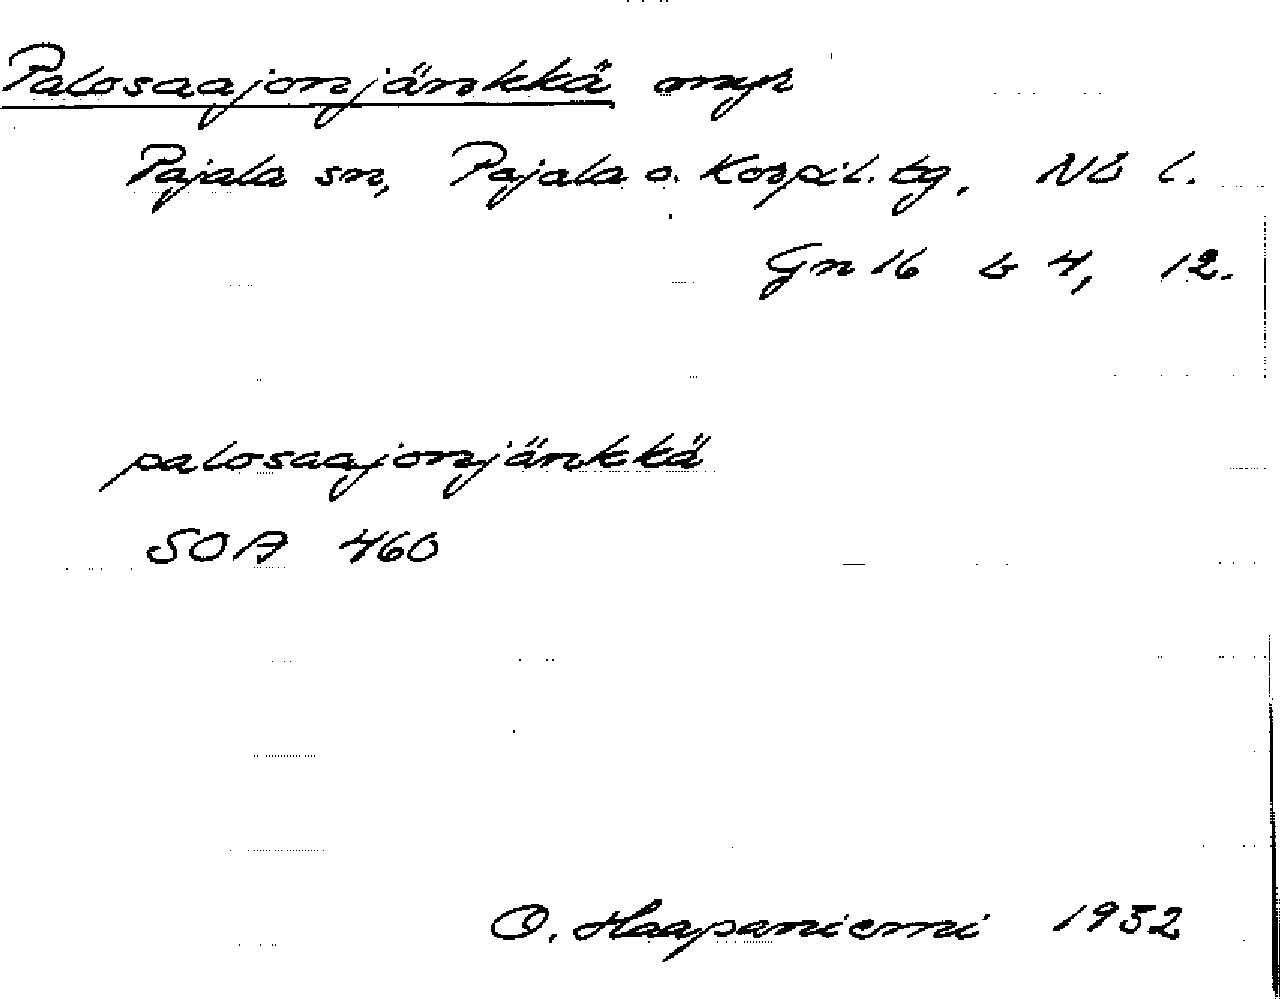 Palosaajonjänkkä myr
Pajala sn, Pajala o. Korpil. tg. Nb l.
Gn 16 b 4, 12.
palosaajonjänkkä
SOA 460
O. Haapaniemi 1932